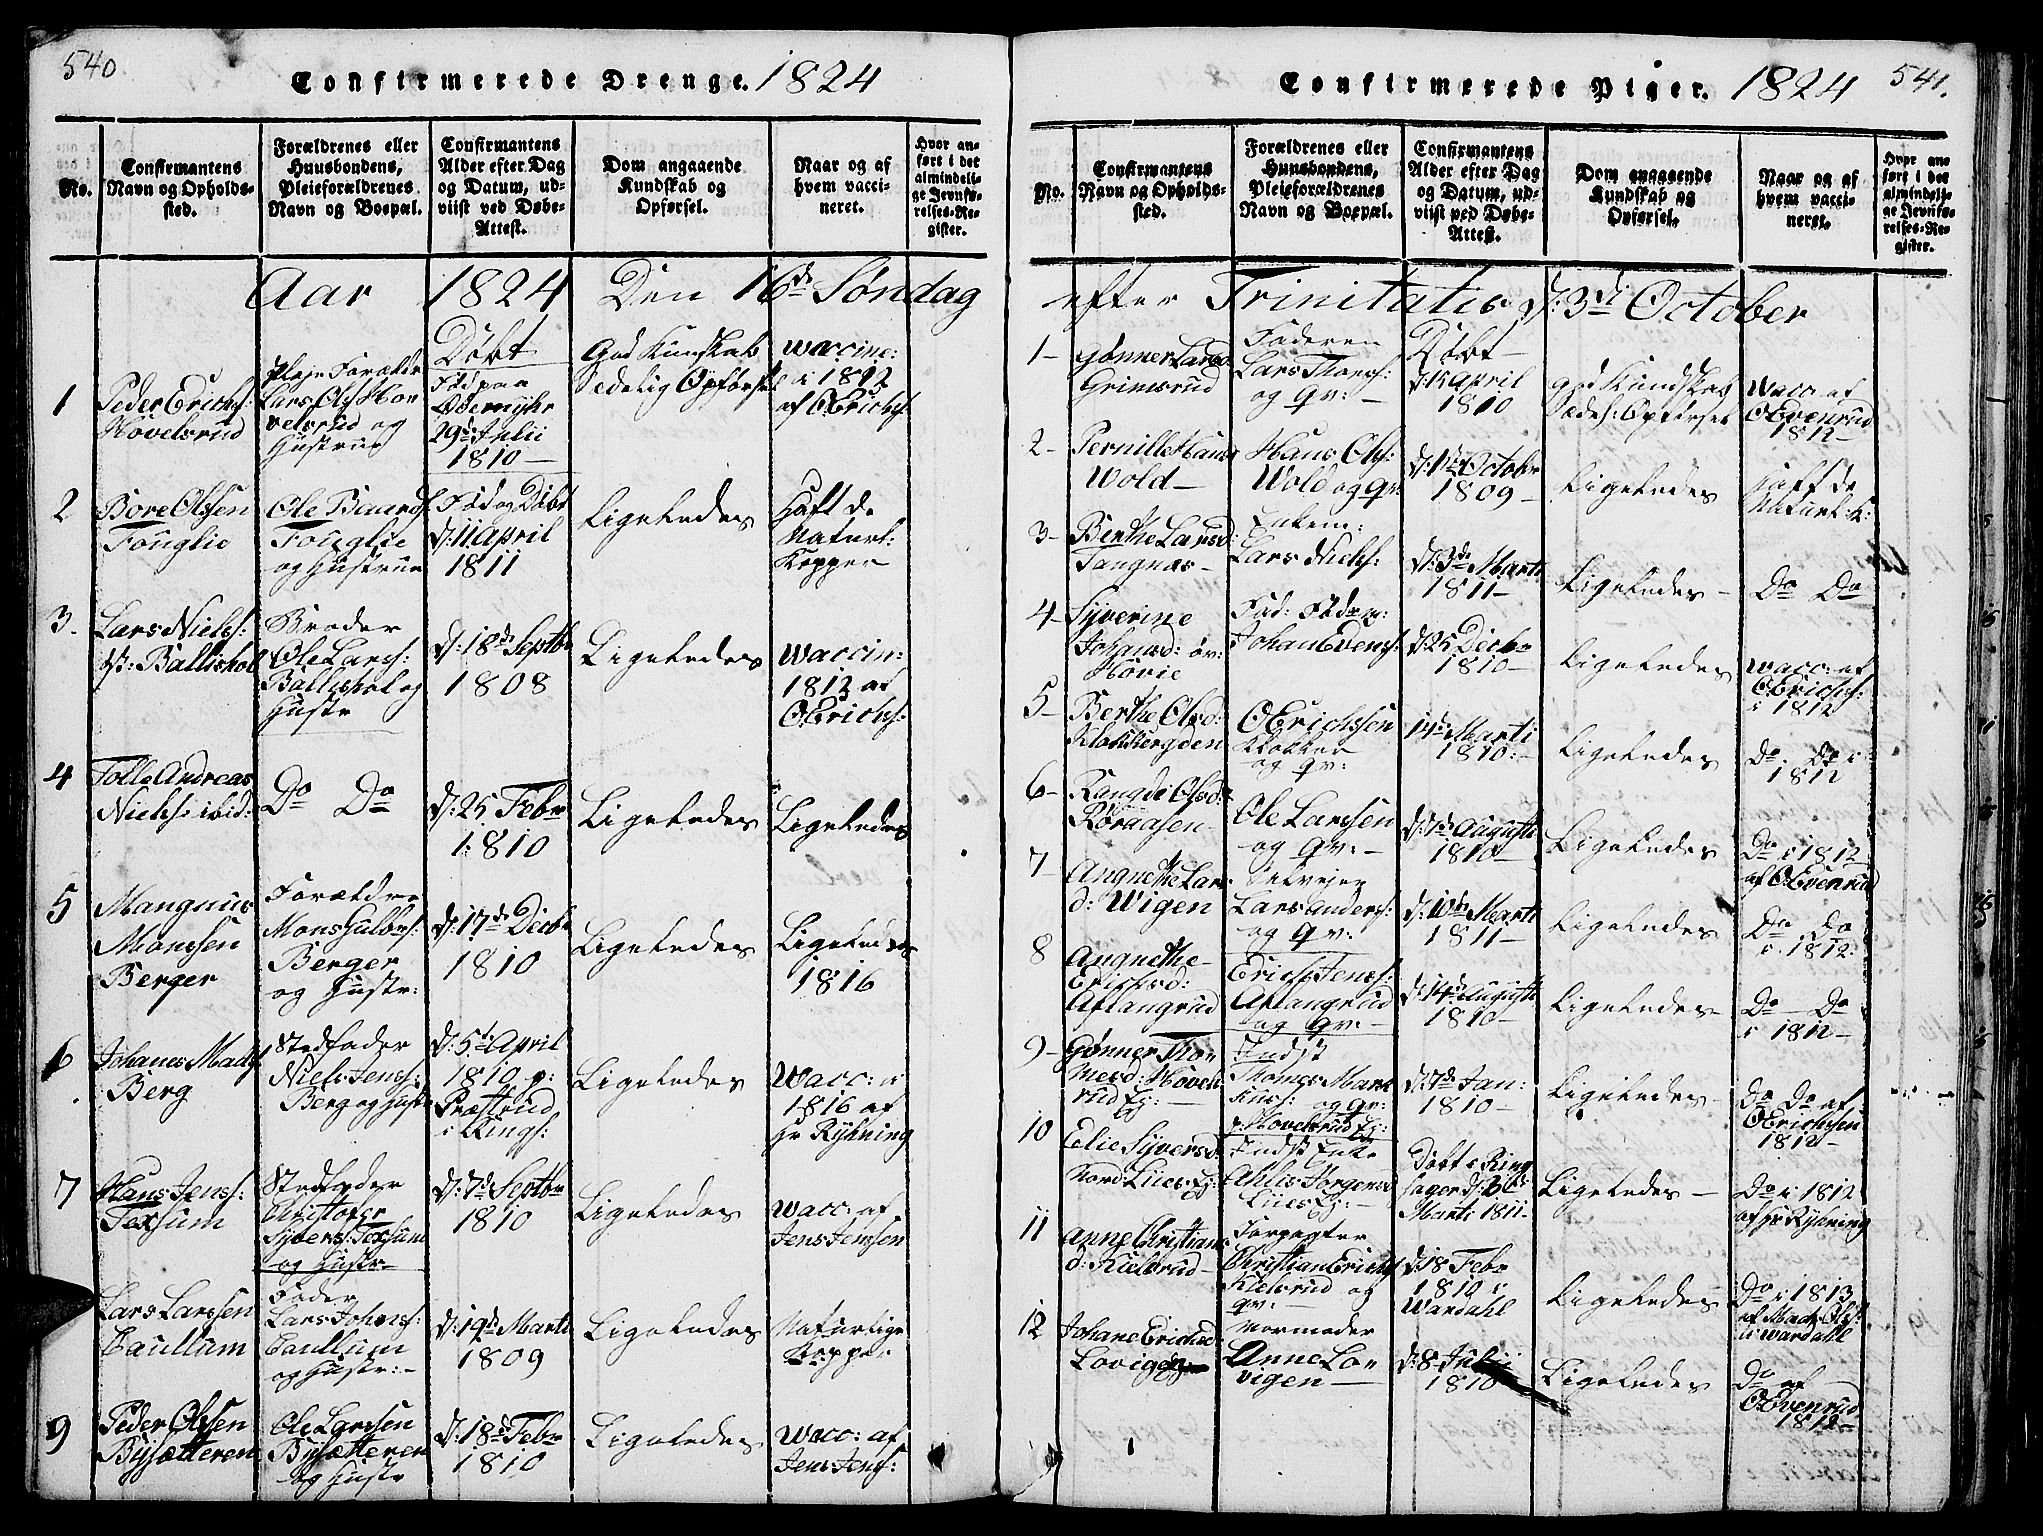 540
Confirmerede Drenge. 1824
No.
Confirmantens
Navn og Opholds-
sted.
Forældrenes eller
Huusbondens,
Pleieforældrenes
Navn og Boepæl.
Confirmantens
Alder efter Dag
og Datum, ud-
viist ved Døbe-
Attest.
Dom angaaende
Kundskab og
Opførsel.
Naar og af
hvem vacci-
neret.
Hvor an-
ført i det
almindeli-
ge Jevnfø-
relses-Re-
gister.
Aar 1824 Den 16de Søndag
1
Peder Erichs:
Hovelsrud
Pleje Forældr
Lars Ols: Ho-
velsrud og
Hustrue
Døbt
Fød paa
29de Julii
1810
God Kunskab
Sedelig Opførsel
Waccine:
i 1812
af OErichs:
2
Bore Olsen
Fouglie
Ole Baards:
Fouglie
og Hustrue
Fød og Døbt
d: 11 April
1811
Ligeledes
Haft de
Naturl:
Kopper
3.
Lars Niels:
Ballishol
Broder
Ole Lars:
Ballishol og
Hustr
d: 18de Septbr
1808
Ligeledes
Waccin:
1812 af
OErichs:
4
Tolle Andreas
Niels: ibid:
Do Do
d: 25 Febr
1810
Ligeledes
Ligeledes
5
Mangnus
Monssen
Berger
Forældre
Mons Gulbrs:
Berger
og Hustr:
d: 17de Decbr
1810
Ligeledes
Ligeledes
1816
6
Johanes Mads:
Berg
Stedfader
Niels Jens:
Berg og Hustr
d: 5te April
1810 p:
Præstrud
i Rings:
Ligeledes
Wacc: i
1816 af
Hr Ryhning
7
Hans Jens:
Texum
Stedfader
Christofer
Syvers: Texum
og Hustr
d: 7de Septbr
1810
Ligeledes
Wacc: af
Jens Jenssen
Lars Larssen
Caullum
Fader
Lars Johns:
Caullum
og Hustr:
d: 19de Marti
1809
Ligeledes
Naturlige
Kopper
9
Peder Olssen
Bysætteren
Ole Larssen
Bysætteren
og Hustr
d: 18de Febr
1810
Ligeledes
Wacc: af
Jens Jens:
541.
Confirmerede Piger. 1824
No.
Confirmantens
Navn og Opholds-
sted.
Forældrenes eller
Huusbondens,
Pleieforældrenes
Navn og Boepæl.
Confirmantens
Alder efter Dag
og Datum, ud-
viist ved Døbe-
Attest.
Dom angaaende
Kundskab og
Opførsel.
Naar og af
hvem vacci-
neret.
Hvor an-
ført i det
almindeli-
ge Jevnfø-
relses-Re-
gister.
efter Trinitatis d: 3die October
1
Gønner Larsd
Grimsrud
Faderen
Lars Thors:
og Qv:
Døbt
April
1810
God Kundskab
Sædel: Opførsel
Wacc: af
OEvenrud
1812
2
Pernille Hansd
Wold
Hans Ols:
Wold og Qv:
d: 1ste Octobr
1809
Ligeledes
Haft de
Naturl: K:
3
Berthe Larsd:
Tangnæs
Lars Niels:
d: 3de Marti
1811
Ligeledes
Do Do
4
Syverine
Johansd: øv:
Hovie
Johan Evens:
d: 25 Decbr
1810
Ligeledes
Wacc: af
OErichs:
i 1812
5
Berthe Olsd:
Klokkergden
OErichssen
Klokker
og Qv:
14de Marti
1810
Ligeledes
Do Do i
1812
6
Rangdi Olsd:
Røraasen
Ole Larssen
og Qv:
d: 7de Augusti
1810
Ligeledes
Do i 1812
af OEvenrud
7
Angnethe Lars
d: Wigen
Selvejer
Lars Anders:
og Qv:
d: 10de Marti
1811
Ligeledes
Do Do
i 1812:
8
Angnethe
Erichsd:
Aflangrud
Erich Jens:
Aflangrud
og Qv:
d: 14de Augusti
1810
Ligeledes
Do Do
i 1812
9
Gønner Tho
mesd: Hovels
rud Ej:
Indst
Thomes Mar
kus: og Qv:
Hovelsrud Ej:
d: 7de Jan:
1810
Ligeledes
Do Do af
OErichsen
1812
10
Elie Syversd
Nord Lies Ej:
Indst Enke
Ahlis Jorgensd
Lies Ej:
Døbt i Ring
sager d: 3de
Marti 1811
Ligeledes
Do i 1812
af Hr Ryhning
11
Anne Christians
d: Kielsrud
Forpagter
Christian Erichs
Kielsrud og
Qv:
d: 18 Febr
1810 i
Wardahl
Ligeledes
Do i 1813
af Mads Ols:
i Wardahl
12
Johane Erichsd:
Lovigen
Mormoder
Anne Lo-
vigen
d: 8 Julii
1810
Ligeledes
Do af
OEvenrud
1812